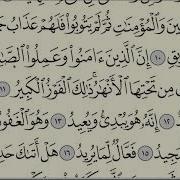 ـينَ وَالْمُؤْمِنَٰتِ ثُمَّ لَمْ يَتُوبُوا۟ فَلَهُمْ عَذَابُ
ـيقِ ١٠ إِنَّ الَّذِينَ ءَامَنُوا۟ وَعَمِلُوا۟ الصَّـ
مِن تَحْتِهَا الْأَنْهَٰرُ ذَٰلِكَ الْفَوْزُ الْكَبِيرُ ١١
١٢ إِنَّهُۥ هُوَ يُبْدِئُ وَيُعِيدُ ١٣ وَهُوَ الْغَفُو
ـجِيدُ ١٥ فَعَّالٌ لِّمَا يُرِيدُ ١٦ هَلْ أَتَىٰكَ حَدِ